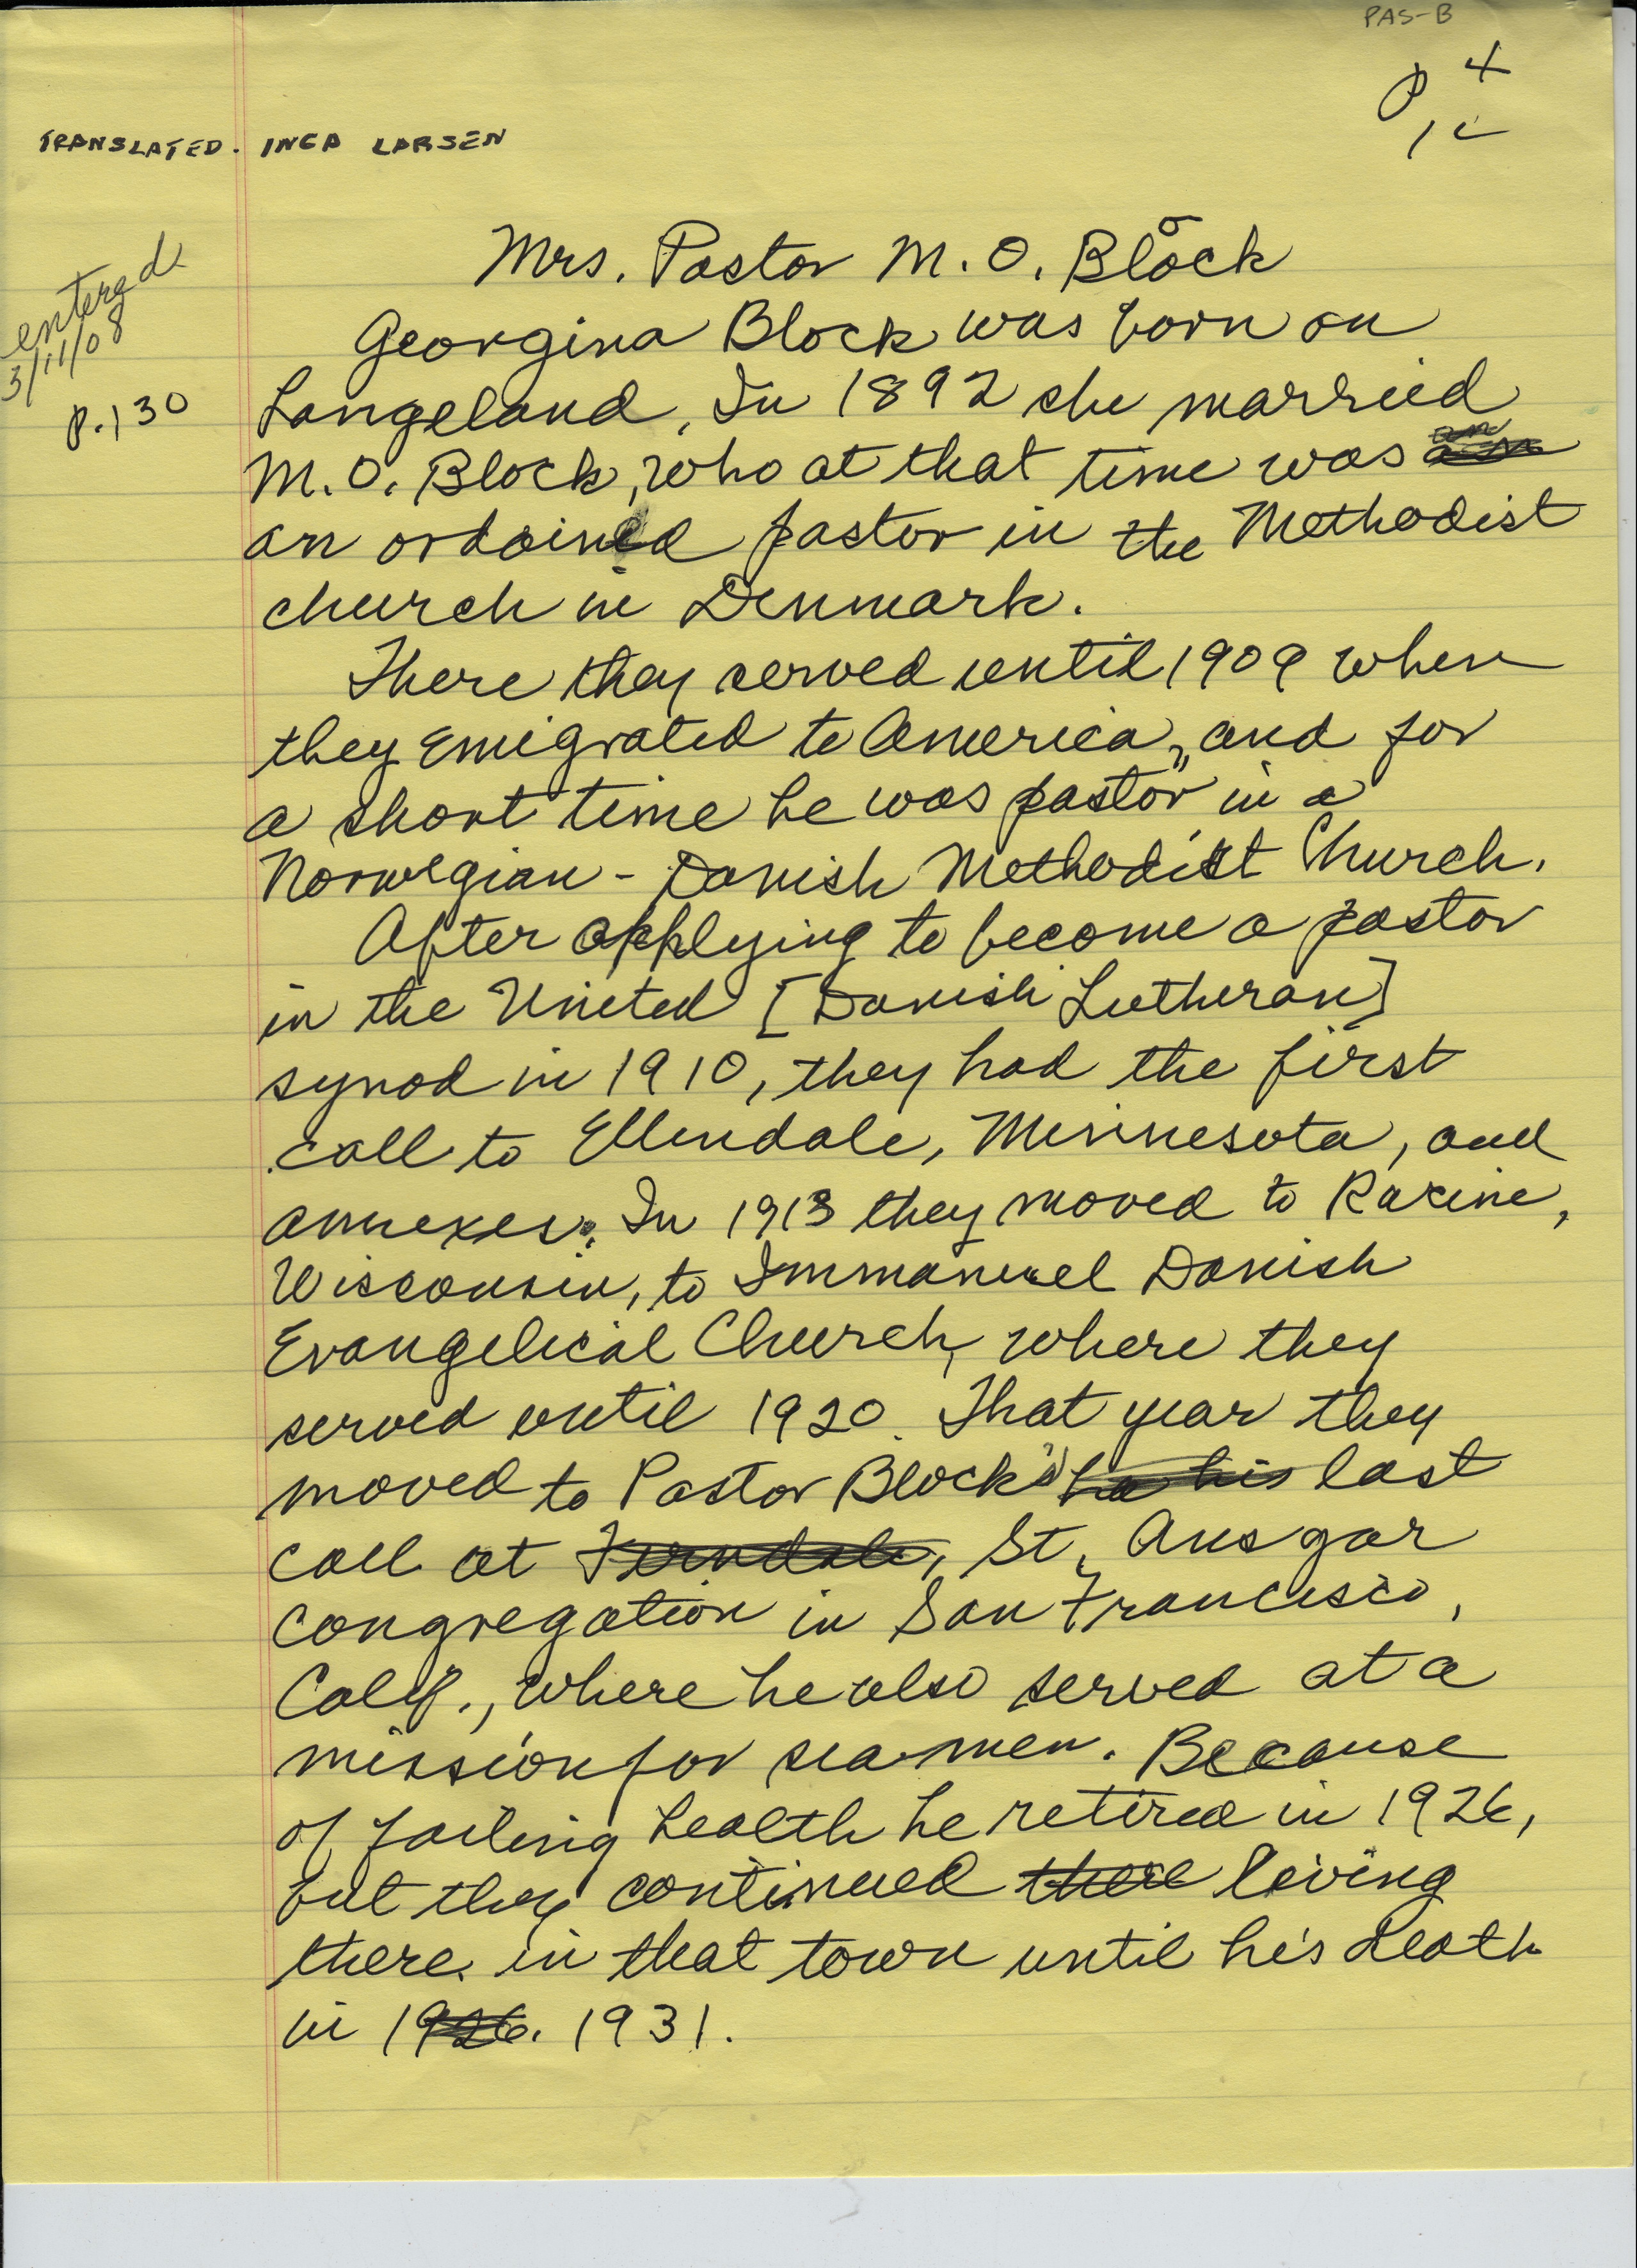 PAS-B
P 4
TRANSLATED. INGA LARSEN
entered
3/11/08
P. 130
Mrs. Pastor M. O. Block
Georgina Block was born on
Langeland. In 1892 she married
M. O. Block, who at that time was
an ordained pastor in the Methodist
church in Denmark.
There they served until 1909 when
they emigrated to America, and for
a short time he was pastor in a
Norwegian - Danish Methodist Church.
After applying to become a pastor
in the United [Danish Lutheran]
synod in 1910, they had the first
call to Ellendale, Minnesota, and
annexes. In 1913 they moved to Racine,
Wisconsin, to Immanuel Danish
Evangelical Church, where they
served until 1920. That year they
moved to Pastor Block's ha his last
call at Ferndale, St. Ansgar
congregation in San Francisco,
Calif., where he also served at a
mission for seamen. Because
of failing health he retired in 1926,
but they continued there living
there in that town until his death
in 1926. 1931.